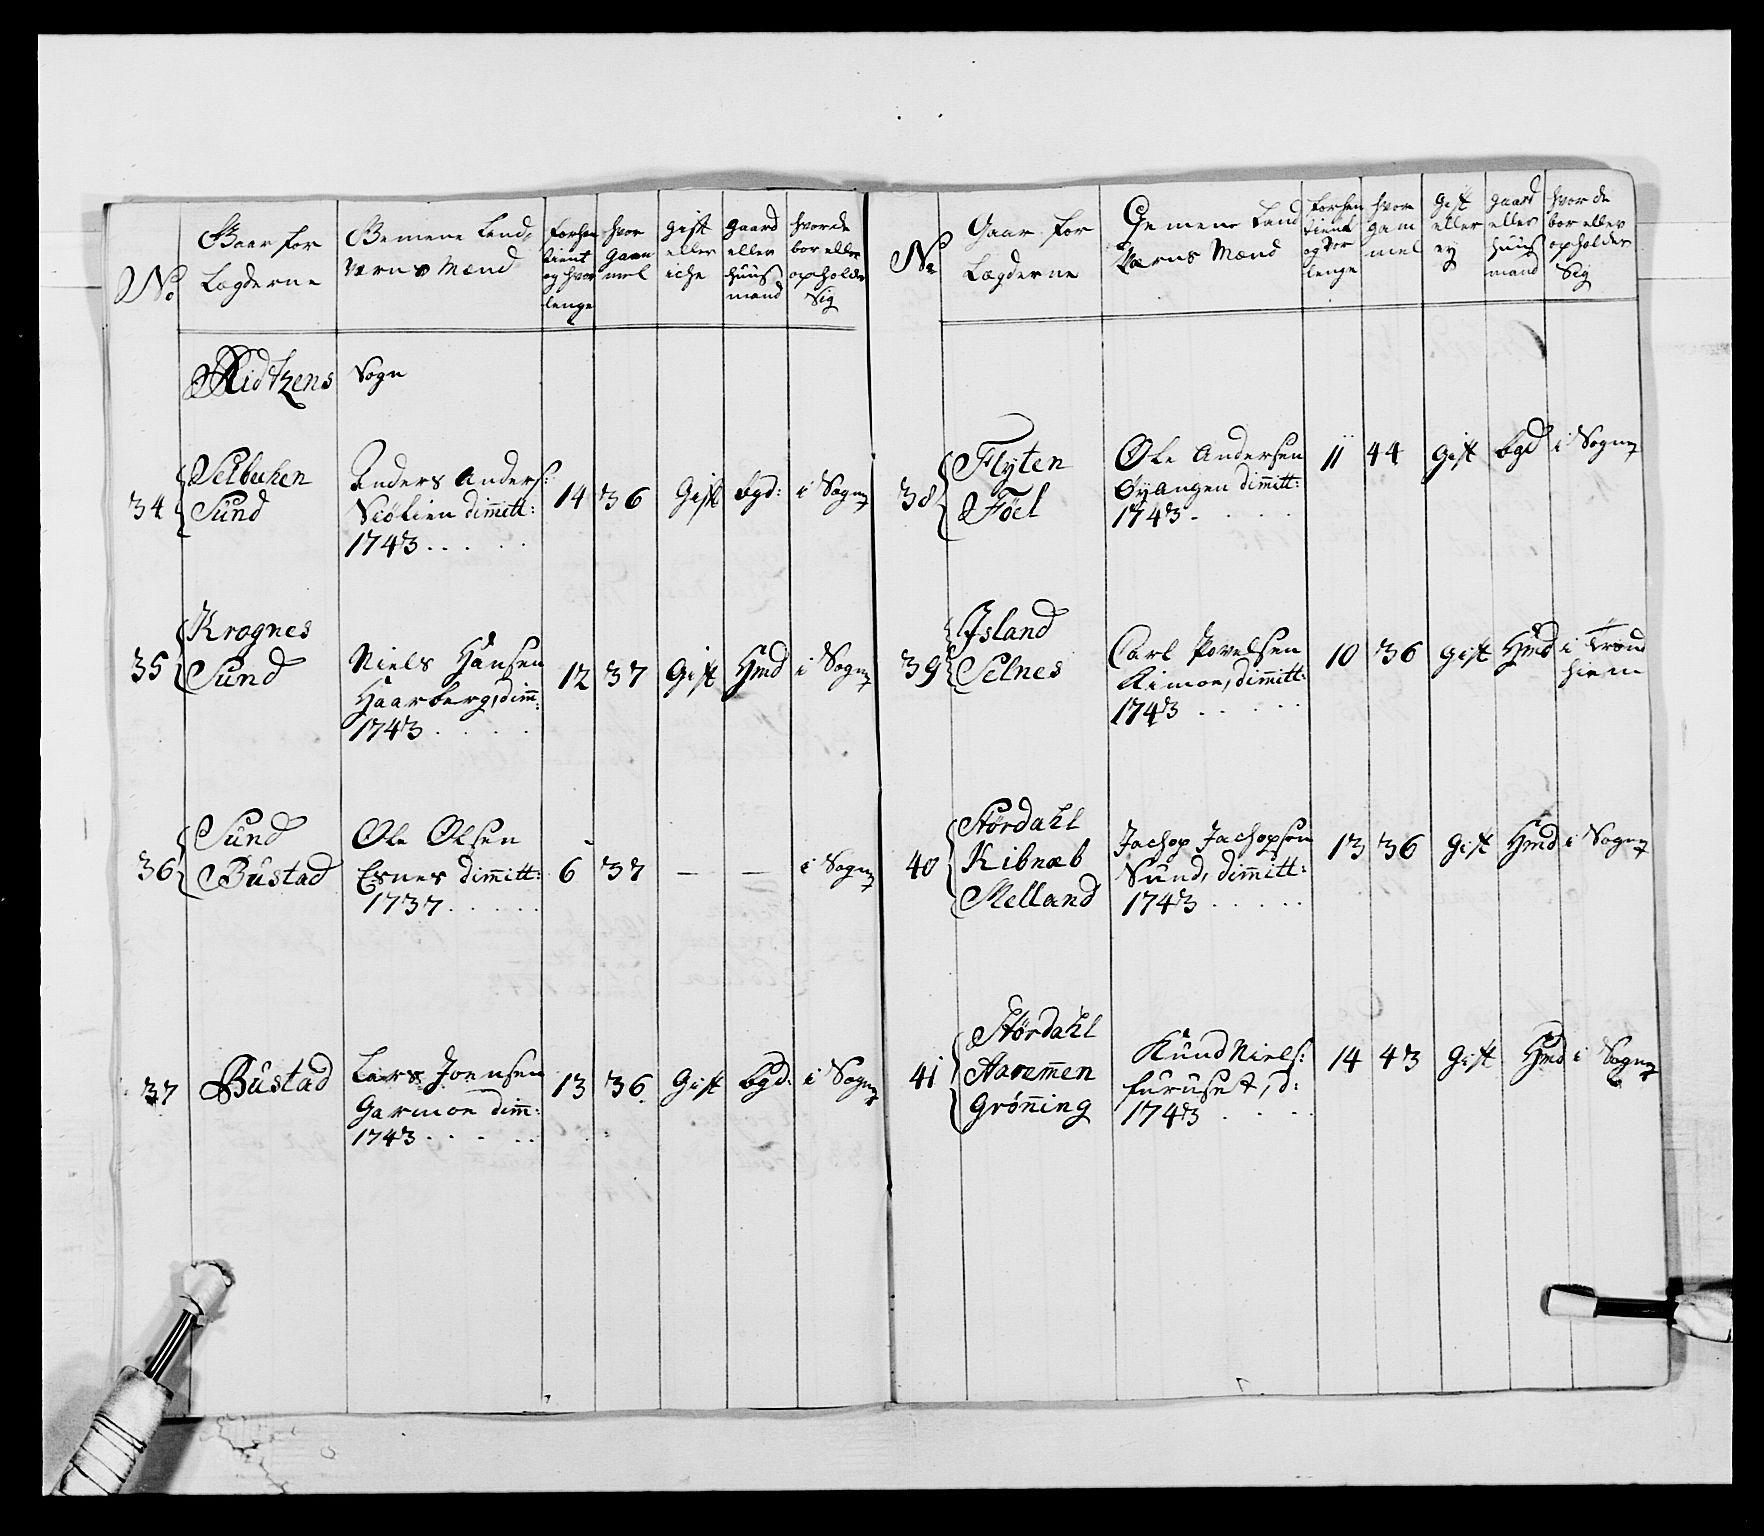 No
Gaar for
Lægderne
Gemene Land,
værns Mænd
forhen
tient
og hvor
lenge
hvor
Gam
mel
gift
eller
iche
gaard
eller
huus
mand
hvor de
bor eller
opholder
Sig
Ridtzens Sogn
34
Selbechen
Sund
Anders Anders:
Siølien dim̄itt:
1743 . . . . .
14 36 Gift bgd: i Sogn
35
Krognes
Sund
Niels Hansen
Haarberg, dim̄:
1743 . . . .
12 37 Gift Hmd i Sogn
36
Sund
Bustad
Ole Olsen
Esnes dim̄itt:
1737 . . . . .
6 37 — — i Sogn
37
Bustad
Lars Joensen
Garmoe dim̄:
1743 . . . . .
13 36 Gift bgd: i Sogn
No
Gaar for
Lægderne
Gemene Land
Værns Mænd
forhen
tient
og hvor
lenge
hvor
gam
mel
gift
eller
ey
gaard
eller
huus
mand
hvor de
bor eller
opholder
Sig
38
Flyten
Föel
Ole Andersen
Øyangen dim̄itt:
1743 - . . . .
11 44 Gift bgd i Sogn
39
Jsland
Selnes
Carl Povelsen
Rimoe, dim̄itt:
1743 . . . . .
10 36 gift Hmd i Trond
hiem
40
Størdahl
Kibnæb
Melland
Jachop Jachopsen
Sund, dim̄itt:
1743 . . . . .
13 36 Gift Hmd i Sogn
41
Størdahl
Aarem̄en
Grøn̄ing
Knud Niels:
furuset, d:
1743 . . . .
14 43 Gift Hmd i Sogn